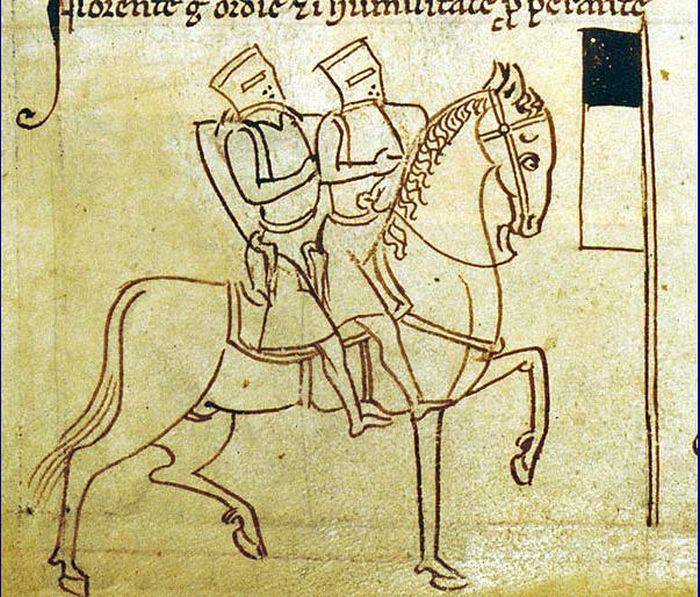 florente ⁊ ordīe ⁊ ī humilitate ꝑꝑerante